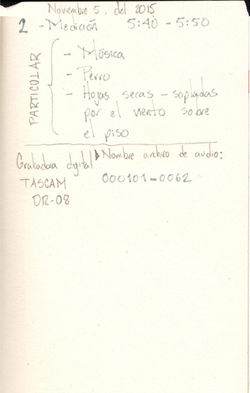 Noviembre 5, del 2015
2 - Medición 5:40 - 5:50
PARTICULAR
- Música
- Perro
- Hojas secas - sopladas
por el viento sobre
el piso
Grabadora digital Nombre archivo de audio:
TASCAM 000101-0062
DR-08